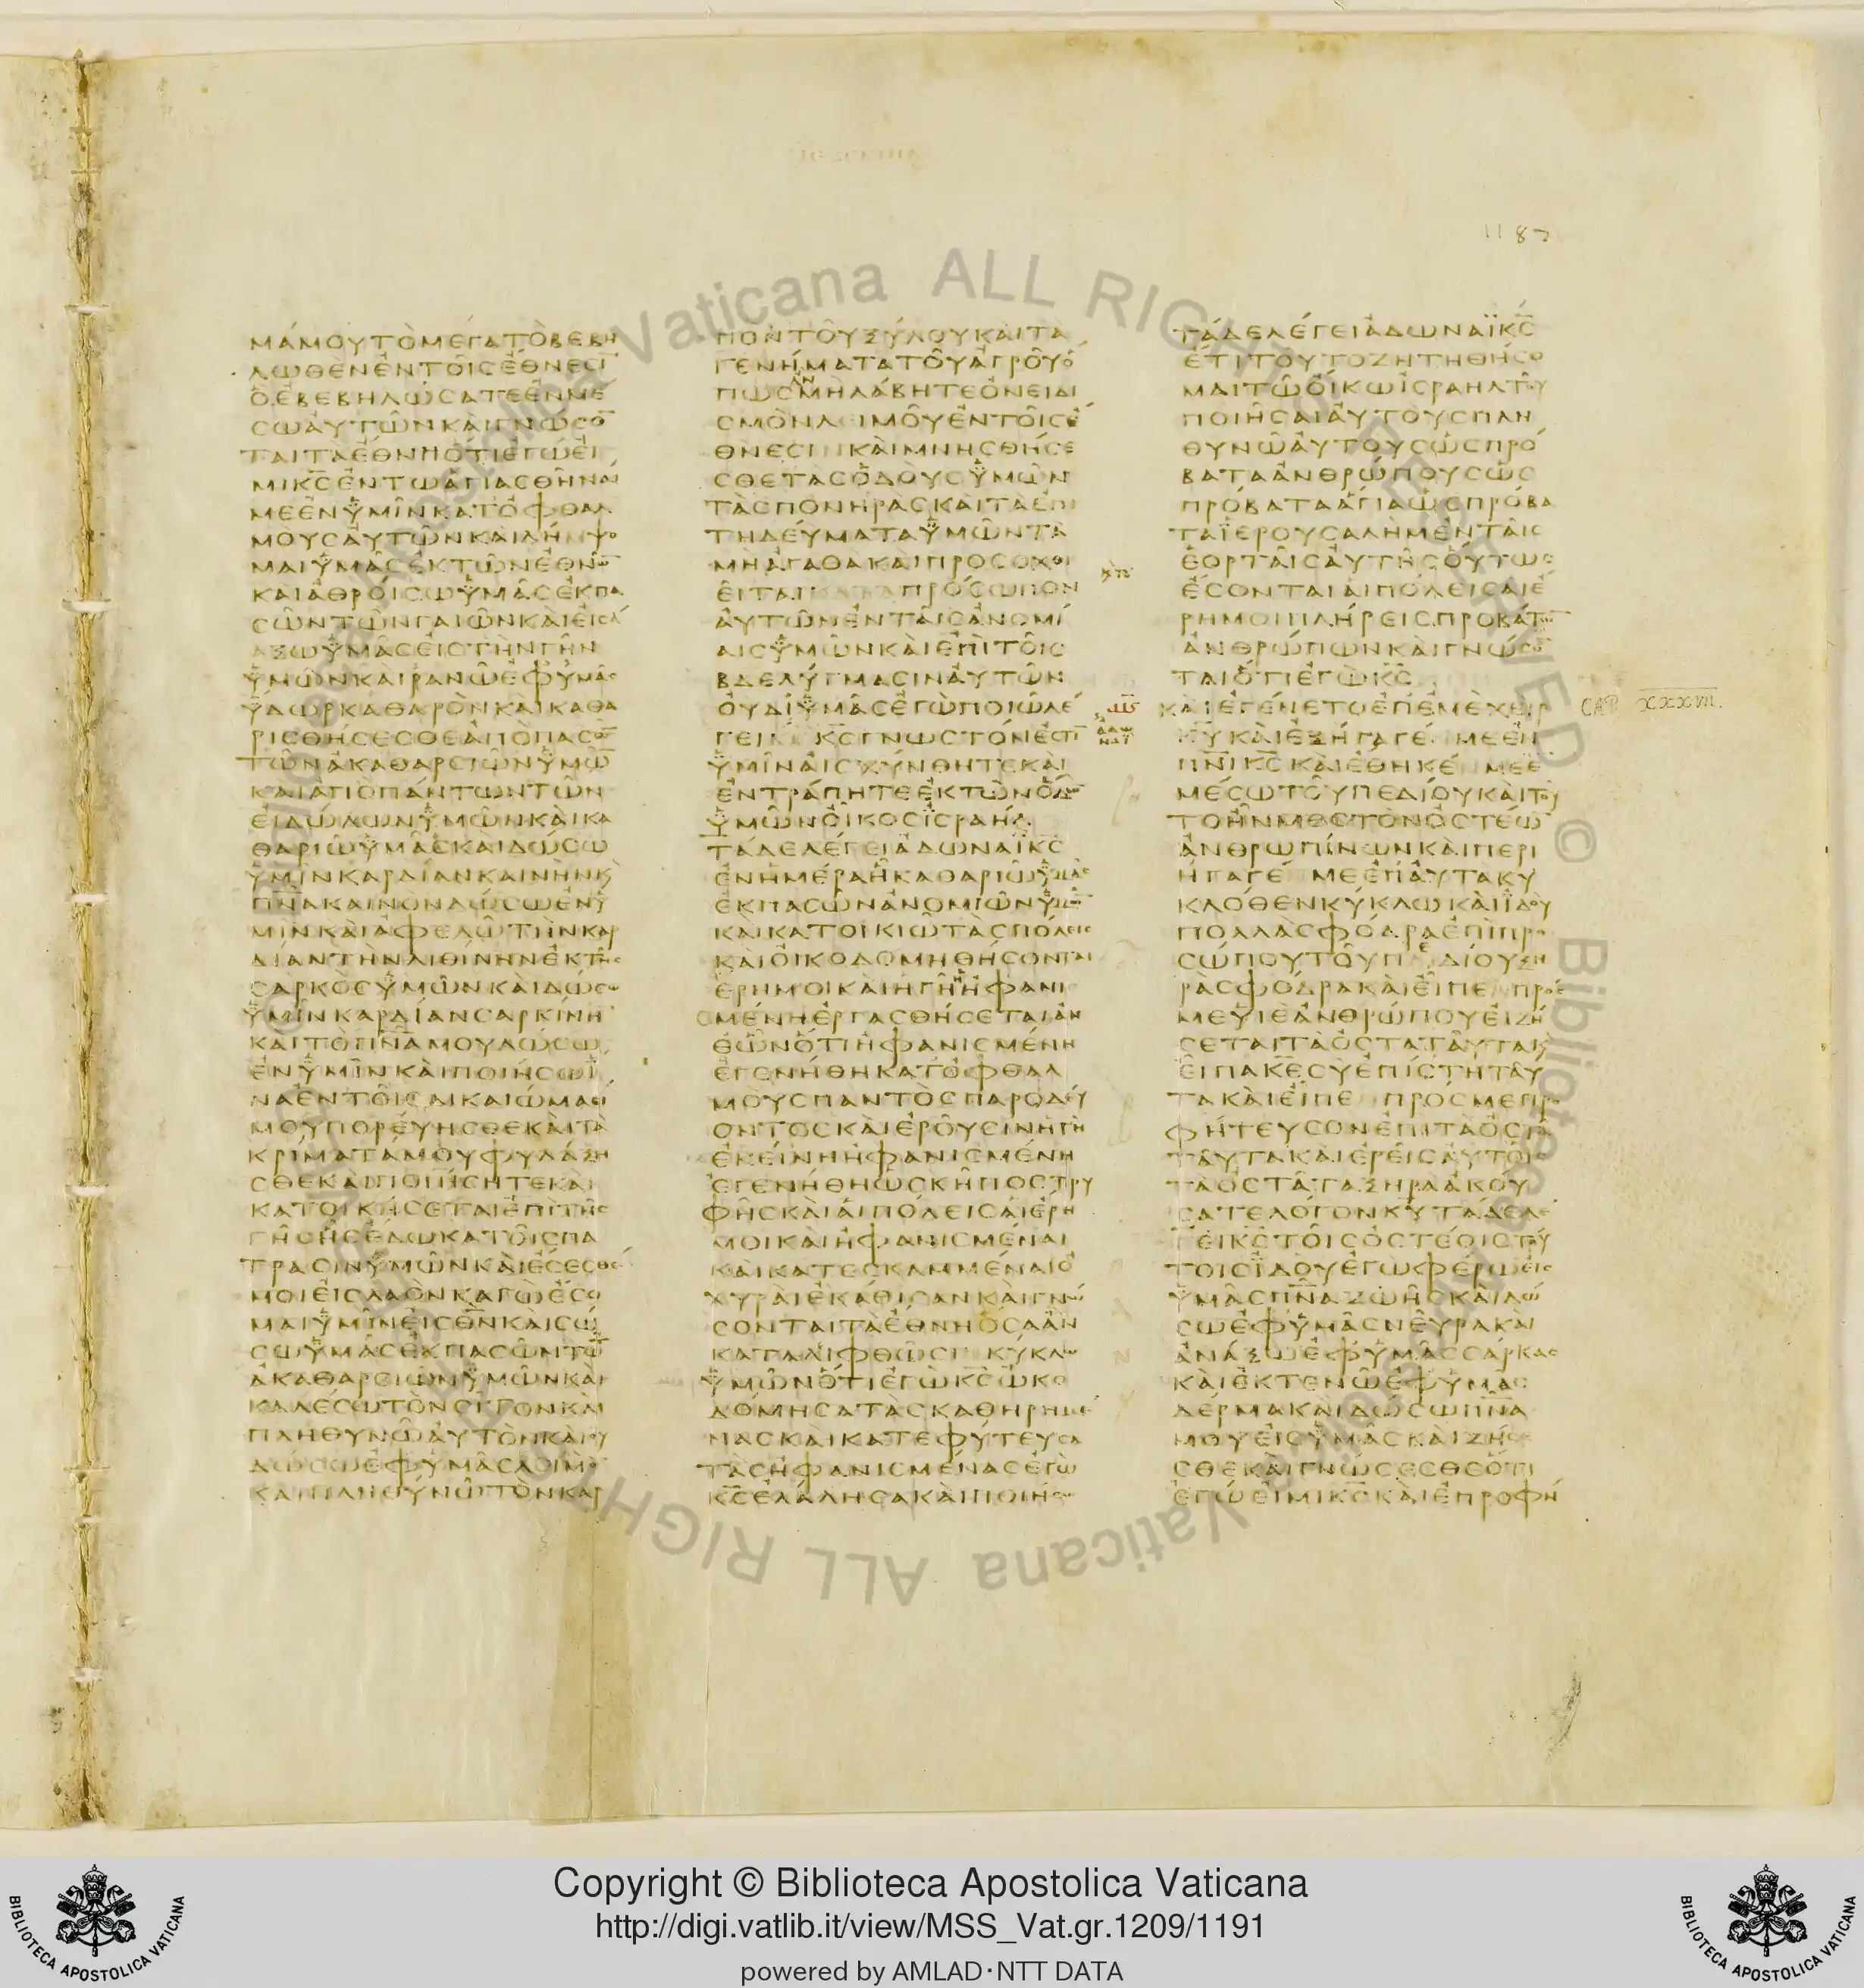 1187
ΜΑΜΟΥΤΟΜΕΓΑΤΟΒΕΒΗ
ΛΩΘΕΝΕΝΤΟΙСΕΘΝΕСΙ
ΟΕΒΕΒΗΛΩСΑΤΕΕΝΜΕ
СΩΑΥΤΩΝΚΑΙΓΝΩСΟ̅
ΤΑΙΤΑΕΘΝΗΟΤΙΕΓΩΕΙ
ΜΙΚ̅С̅ΕΝΤΩΑΓΙΑСΘΗΝΑΙ
ΜΕΕΝΥΜΙΝΚΑΤΟΦΘΑΛ
ΜΟΥСΑΥΤΩΝΚΑΙΛΗΜΨΟ
ΜΑΙΥΜΑСΕΚΤΩΝΕΘΝΩ̅
ΚΑΙΑΘΡΟΙСΩΥΜΑСΕΚΠΑ
СΩΝΤΩΝΓΑΙΩΝΚΑΙΕΙСΑ
ΑΞΩΥΜΑСΕΙСΤΗΝΓΗΝ
ΥΜΩΝΚΑΙΡΑΝΩΕΦΥΜΑС
ΥΔΩΡΚΑΘΑΡΟΝΚΑΙΚΑΘΑ
ΡΙСΘΗСΕСΘΕΑΠΟΠΑСΩ̅
ΤΩΝΑΚΑΘΑΡСΙΩΝΥΜΩ̅
ΚΑΙΑΠΟΠΑΝΤΩΝΤΩΝ
ΕΙΔΩΛΩΝΥΜΩΝΚΑΙΚΑ
ΘΑΡΙΩΥΜΑСΚΑΙΔΩСΩ
ΥΜΙΝΚΑΡΔΙΑΝΚΑΙΝΗΝΚ
Π̅Ν̅Α̅ΚΑΙΝΟΝΔΩСΩΕΝΥ
ΜΙΝΚΑΙΑΦΕΛΩΤΗΝΚΑΡ
ΔΙΑΝΤΗΝΛΙΘΙΝΗΝΕΚΤΗС
СΑΡΚΟСΥΜΩΝΚΑΙΔΩСΩ
ΥΜΙΝΚΑΡΔΙΑΝСΑΡΚΙΝΗ
ΚΑΙΤΟΠ̅Ν̅Α̅ΜΟΥΔΩСΩ
ΕΝΥΜΙΝΚΑΙΠΟΙΗСΩΙ
ΝΑΕΝΤΟΙСΔΙΚΑΙΩΜΑСΙ
ΜΟΥΠΟΡΕΥΗСΘΕΚΑΙΤΑ
ΚΡΙΜΑΤΑΜΟΥΦΥΛΑΞΗ
СΘΕΚΑΙΠΟΙΗСΗΤΕΚΑΙ
ΚΑΤΟΙΚΗСΕΤΑΙΕΠΙΤΗС
ΓΗСΗСΕΔΩΚΑΤΟΙСΠΑ
ΤΡΑСΙΝΥΜΩΝΚΑΙΕСΕСΘΕ
ΜΟΙΕΙСΛΑΟΝΚΑΓΩΕСΟ
ΜΑΙΥΜΙΝΕΙСΘ̅Ν̅ΚΑΙСΩ
СΩΥΜΑСΕΚΠΑСΩΝΤΩ̅
ΑΚΑΘΑΡСΙΩΝΥΜΩΝΚΑΙ
ΚΑΛΕСΩΤΟΝСΙΤΟΝΚΑΙ
ΠΛΗΘΥΝΩΑΥΤΟΝΚΑΙΟΥ
ΔΩСΩΕΦΥΜΑСΛΟΙΜΟ
ΚΑΙΠΛΗΘΥΝΩΤΟΝΚΑΡ
ΠΟΝΤΟΥΞΥΛΟΥΚΑΙΤΑ
ΓΕΝΗΜΑΤΑΤΟΥΑΓΡΟΥΟ
ΠΩСΑΝΜΗΛΑΒΗΤΕΟΝΕΙΔΙ
СΜΟΝΛΕΙΜΟΥΕΝΤΟΙСΕ
ΘΝΕСΙΝΚΑΙΜΝΗСΘΗСΕ
СΘΕΤΑСΟΔΟΥСΥΜΩΝ
ΤΑСΠΟΝΗΡΑСΚΑΙΤΑΕΠΙ
ΤΗΔΕΥΜΑΤΑΥΜΩΝΤΑ
ΜΗΑΓΑΘΑΚΑΙΠΡΟСΟΧΘΙ
ΕΙΤΑΙΚΑΤΑΠΡΟСΩΠΟΝ
ΑΥΤΩΝΕΝΤΑΙСΑΝΟΜΙ
ΑΙСΥΜΩΝΚΑΙΕΠΙΤΟΙС
ΒΔΕΛΥΓΜΑСΙΝΑΥΤΩΝ
ΟΥΔΙΥΜΑСΕΓΩΠΟΙΩΛΕ
ΓΕΙΚ̅С̅ΓΝΩСΤΟΝΕСΤΙ̅
ΥΜΙΝΑΙСΧΥΝΘΗΤΕΚΑΙ
ΕΝΤΡΑΠΗΤΕΕΚΤΩΝΟΔΩ̅
ΥΜΩΝΟΙΚΟСΙСΡΑΗΛ
ΤΑΔΕΛΕΓΕΙΑΔΩΝΑΙΚ̅С̅
ΕΝΗΜΕΡΑΗΚΑΘΑΡΙΩΥΜΑС
ΕΚΠΑСΩΝΑΝΟΜΙΩΝΥΜΩ̅
ΚΑΙΚΑΤΟΙΚΙΩΤΑСΠΟΛΕΙС
ΚΑΙΟΙΚΟΔΟΜΗΘΗСΟΝΤΑΙ
ΕΡΗΜΟΙΚΑΙΗΓΗΗΗΦΑΝΙ
СΜΕΝΗΕΡΓΑСΘΗСΕΤΑΙΑΝ
ΘΩΝΟΤΙΗΦΑΝΙСΜΕΝΗ
ΕΓΕΝΗΘΗΚΑΤΟΦΘΑΛ
ΜΟΥСΠΑΝΤΟСΠΑΡΟΔΕΥ
ΟΝΤΟСΚΑΙΕΡΟΥСΙΝΗΓΗ
ΕΚΕΙΝΗΗΦΑΝΙСΜΕΝΗ
ΕΓΕΝΗΘΗΩСΚΗΠΟСΤΡΥ
ΦΗСΚΑΙΑΙΠΟΛΕΙСΑΙΕΡΗ
ΜΟΙΚΑΙΗΦΑΝΙСΜΕΝΑΙ
ΚΑΙΚΑΤΕСΚΑΜΜΕΝΑΙΟ
ΧΥΡΑΙΕΚΑΘΙСΑΝΚΑΙΓΝΩ
СΟΝΤΑΙΤΑΕΘΝΗΟСΑΑΝ
ΚΑΤΑΛΙΦΘΩСΙΚΥΚΛΩ
ΥΜΩΝΟΤΙΕΓΩΚ̅С̅ΩΚΟ
ΔΟΜΗСΑΤΑСΚΑΘΗΡΗΜΕ
ΝΑСΚΑΙΚΑΤΕΦΥΤΕΥСΑ
ΤΑСΗΦΑΝΙСΜΕΝΑСΕΓΩ
Κ̅С̅ΕΛΑΛΗСΑΚΑΙΠΟΙΗСΩ
ΤΑΔΕΛΕΓΕΙΑΔΩΝΑΙΚ̅С̅
ΕΤΙΤΟΥΤΟΖΗΤΗΘΗСΟ
ΜΑΙΤΩΟΙΚΩΙСΡΑΗΛΤΟΥ
ΠΟΙΗСΑΙΑΥΤΟΥСΠΛΗ
ΘΥΝΩΑΥΤΟΥСΩСΠΡΟ
ΒΑΤΑΑΝΘΡΩΠΟΥСΩС
ΠΡΟΒΑΤΑΑΓΙΑΩСΠΡΟΒΑ
ΤΑΙΕΡΟΥСΑΛΗΜΕΝΤΑΙС
ΕΟΡΤΑΙСΑΥΤΗСΟΥΤΩС
ΕСΟΝΤΑΙΑΙΠΟΛΕΙСΑΙΕ
ΡΗΜΟΙΠΛΗΡΕΙСΠΡΟΒΑΤΩ̅
ΑΝΘΡΩΠΩΝΚΑΙΓΝΩСΟ̅
ΤΑΙΟΤΙΕΓΩΚ̅С̅
ΚΑΙΕΓΕΝΕΤΟΕΠΕΜΕΧΕΙΡ
CAP. XXXVII.
Κ̅Υ̅ΚΑΙΕΞΗΓΑΓΕΜΕΕΝ
Π̅Ν̅Ι̅Κ̅С̅ΚΑΙΕΘΗΚΕΜΕΕ̅
ΜΕСΩΤΟΥΠΕΔΙΟΥΚΑΙΤΟΥ
ΤΟΗΝΜΕСΤΟΝΟСΤΕΩ̅
ΑΝΘΡΩΠΙΝΩΝΚΑΙΠΕΡΙ
ΗΓΑΓΕΜΕΕΠΑΥΤΑΚΥ
ΚΛΟΘΕΝΚΥΚΛΩΚΑΙΙΔΟΥ
ΠΟΛΛΑСΦΟΔΡΑΕΠΙΠΡΟ
СΩΠΟΥΤΟΥΠΕΔΙΟΥΞΗ
ΡΑСΦΟΔΡΑΚΑΙΕΙΠΕΠΡΟС
ΜΕΥΙΕΑΝΘΡΩΠΟΥΕΙΖΗ
СΕΤΑΙΤΑΟСΤΑΤΑΥΤΑΚ
ΕΙΠΑΚ̅Ε̅СΥΕΠΙСΤΗΤΑΥ
ΤΑΚΑΙΕΙΠΕΠΡΟСΜΕΠΡΟ
ΦΗΤΕΥСΟΝΕΠΙΤΑΟСΤΑ
ΤΑΥΤΑΚΑΙΕΡΕΙСΑΥΤΟΙС
ΤΑΟСΤΑΤΑΞΗΡΑΑΚΟΥ
СΑΤΕΛΟΓΟΝΚ̅Υ̅ΤΑΔΕΛΕ
ΓΕΙΚ̅С̅ΤΟΙСΟСΤΕΟΙСΤΟΥ
ΤΟΙСΙΔΟΥΕΓΩΦΕΡΩΕΙС
ΥΜΑСΠ̅Ν̅Α̅ΖΩΗСΚΑΙΔΩ
СΩΕΦΥΜΑСΝΕΥΡΑΚΑΙ
ΑΝΑΞΩΕΦΥΜΑССΑΡΚΑС
ΚΑΙΕΚΤΕΝΩΕΦΥΜΑС
ΔΕΡΜΑΚΑΙΔΩСΩΠ̅Ν̅Α̅
ΜΟΥΕΙСΥΜΑСΚΑΙΖΗСΕ
СΘΕΚΑΙΓΝΩСΕСΘΕΟΤΙ
ΕΓΩΕΙΜΙΚ̅С̅ΚΑΙΕΠΡΟΦΗ
Copyright © Biblioteca Apostolica Vaticana
http://digi.vatlib.it/view/MSS_Vat.gr.1209/1191
powered by AMLAD·NTT DATA
BIBLIOTECA APOSTOLICA VATICANA
BIBLIOTECA APOSTOLICA VATICANA